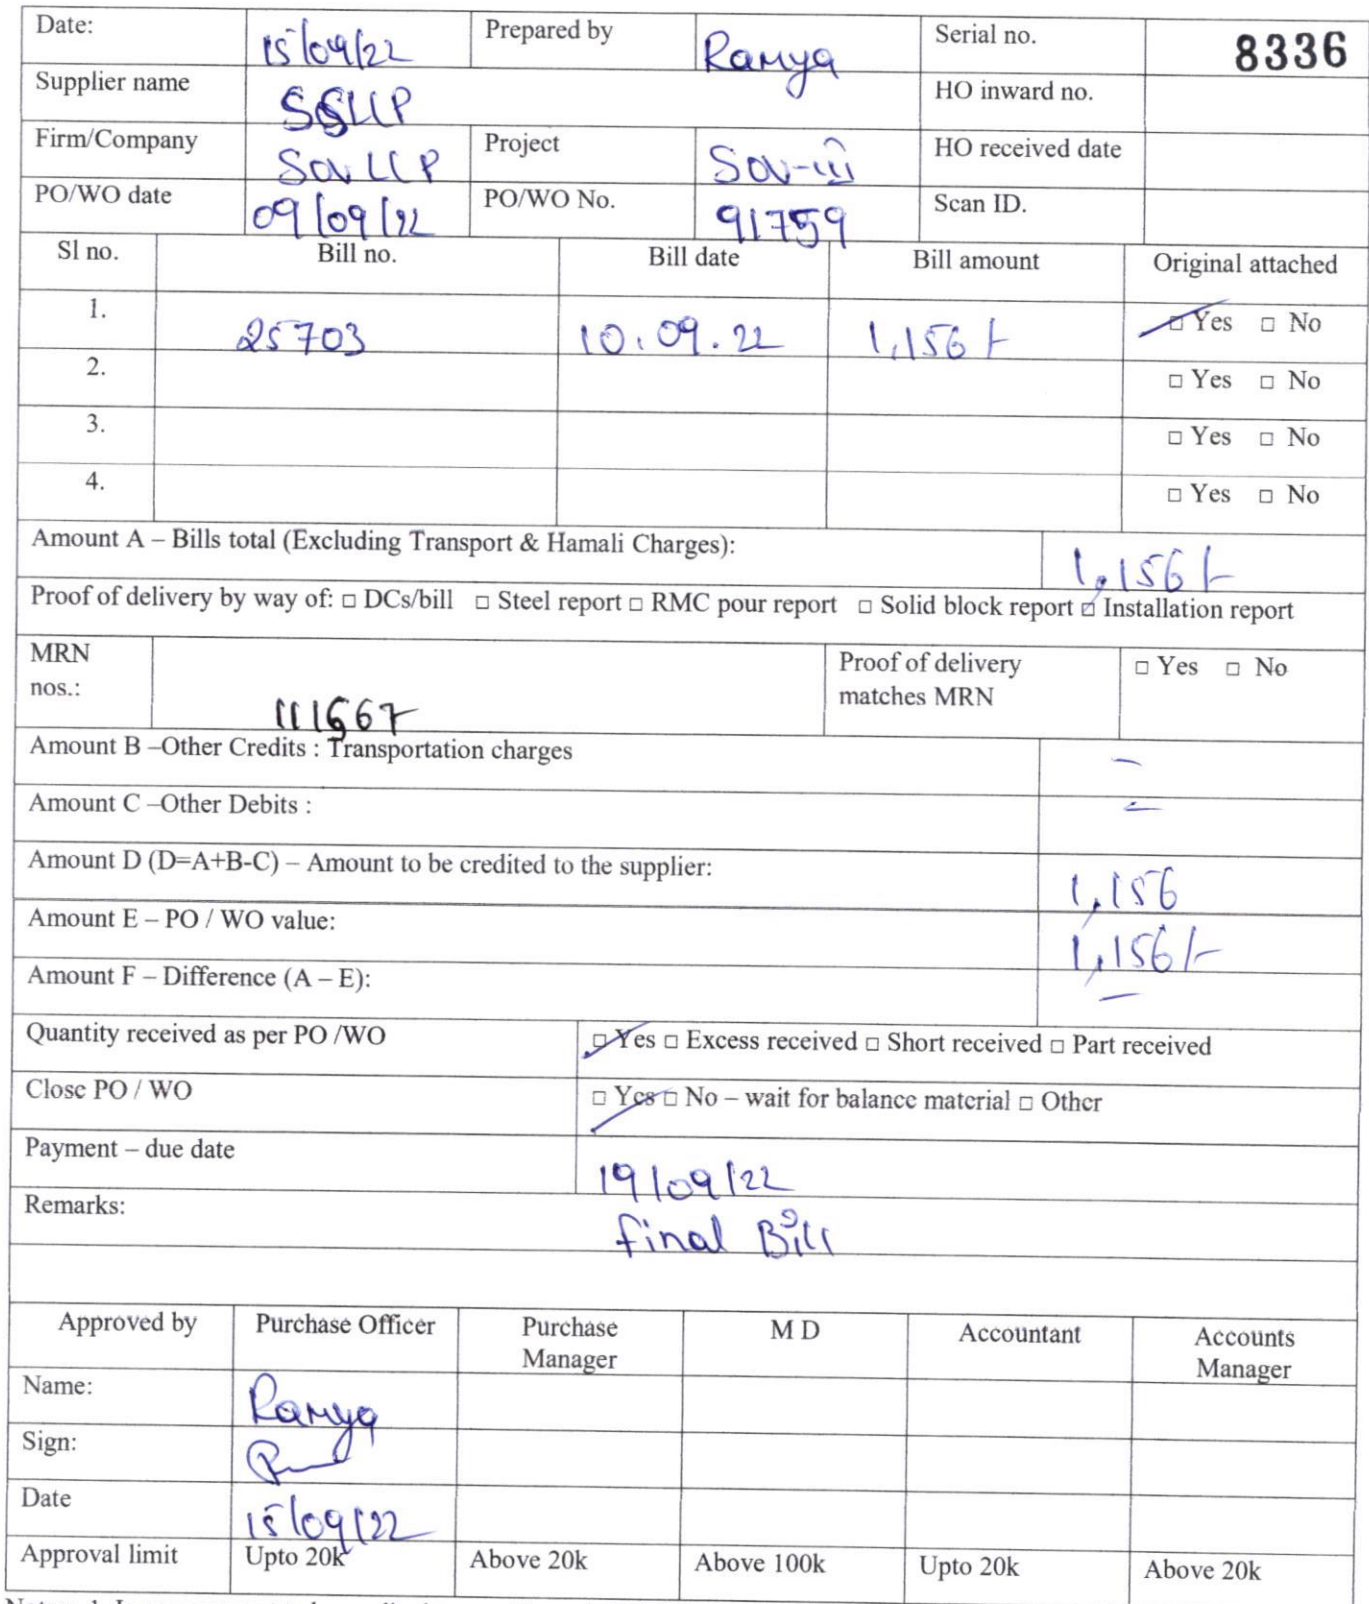 Date: 15/09/22 Prepared by Ramya Serial no. 8336
Supplier name SSLLP HO inward no.
Firm/Company SOV LLP Project SOV-III HO received date
PO/WO date 09/09/22 PO/WO No. 91759 Scan ID.
Sl no. Bill no. Bill date Bill amount Original attached
1. 25703 10.09.22 1,156/- □ Yes □ No
2. □ Yes □ No
3. □ Yes □ No
4. □ Yes □ No
Amount A – Bills total (Excluding Transport & Hamali Charges): 1,156/-
Proof of delivery by way of: □ DCs/bill □ Steel report □ RMC pour report □ Solid block report □ Installation report
MRN nos.: 111667 Proof of delivery matches MRN □ Yes □ No
Amount B –Other Credits : Transportation charges –
Amount C –Other Debits : –
Amount D (D=A+B-C) – Amount to be credited to the supplier: 1,156
Amount E – PO / WO value: 1,156/-
Amount F – Difference (A – E): –
Quantity received as per PO /WO □ Yes □ Excess received □ Short received □ Part received
Close PO / WO □ Yes □ No – wait for balance material □ Other
Payment – due date 19/09/22
Remarks: final Bill
Approved by Purchase Officer Purchase Manager M D Accountant Accounts Manager
Name: Ramya
Sign:
Date 15/09/22
Approval limit Upto 20k Above 20k Above 100k Upto 20k Above 20k